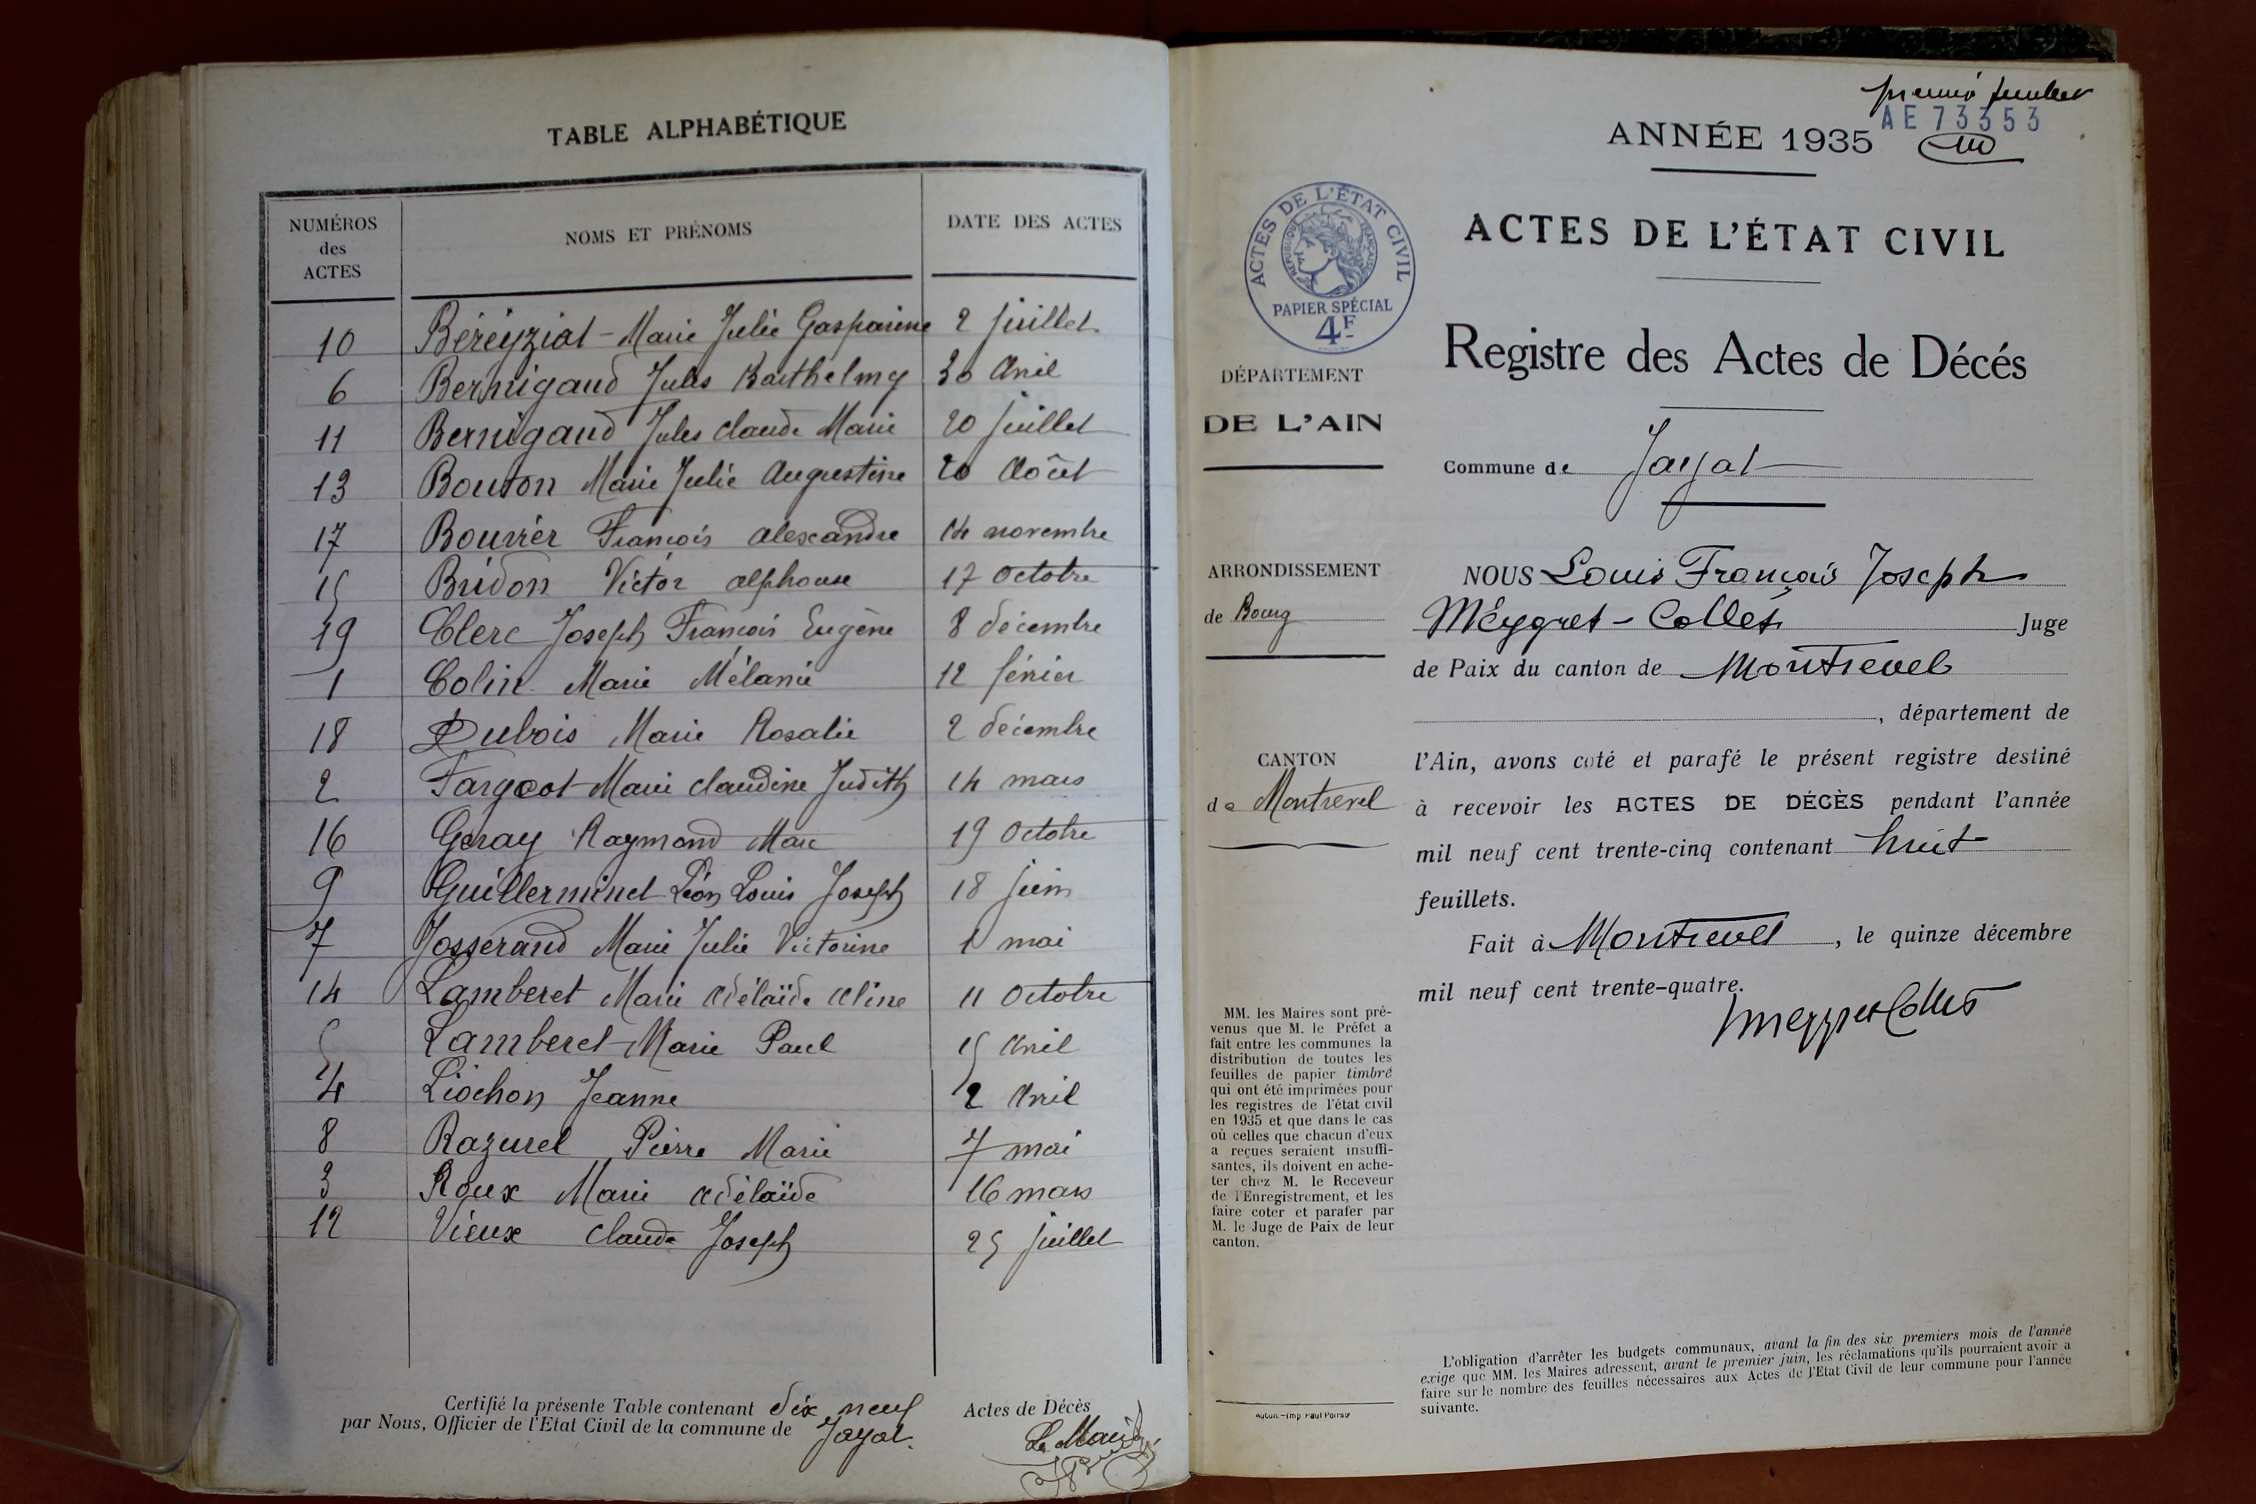 TABLE ALPHABÉTIQUE
NUMÉROS
des
ACTES
NOMS ET PRÉNOMS
DATE DES ACTES
10 Béréyziat - Marie Julie Gasparine 2 juillet
6 Bernigaud Jules Barthelmy 30 Avril
11 Bernigaud Jules Claude Marie 20 juillet
13 Bouton Marie Julie Augustine 20 Août
17 Bouvier François Alexandre 14 novembre
15 Bridon Victor Alphonse 17 Octobre
19 Clerc Joseph François Eugène 8 décembre
1 Colin Marie Mélanie 12 février
18 Dubois Marie Rosalie 2 décembre
2 Fargeot Marie Claudine Judith 14 mars
16 Geray Raymond Marc 19 Octobre
9 Guillerminet Léon Louis Joseph 18 juin
7 Josserand Marie Julie Victorine 1 mai
14 Lamberet Marie Adélaïde Aline 11 Octobre
5 Lamberet Marie Paul 15 Avril
4 Liochon Jeanne 2 Avril
8 Razurel Pierre Marie 7 mai
3 Roux Marie Adélaïde 16 mars
12 Vieux Claude Joseph 25 juillet
Certifié la présente Table contenant dix neuf Actes de Décès
par Nous, Officier de l'Etat Civil de la commune de Jayat.
Le Maire
premier feuillet
AE 73353
ANNÉE 1935
ACTES DE L'ÉTAT CIVIL
RÉPUBLIQUE FRANÇAISE
PAPIER SPÉCIAL
4F
ACTES DE L'ÉTAT CIVIL
Registre des Actes de Décés
DÉPARTEMENT
DE L'AIN
Commune de Jayat
ARRONDISSEMENT
de Bourg
CANTON
de Montrevel
NOUS Louis François Joseph
Meygret-Collet, Juge
de Paix du canton de Montrevel
, département de
l'Ain, avons coté et parafé le présent registre destiné
à recevoir les ACTES DE DÉCÈS pendant l'année
mil neuf cent trente-cinq contenant huit
feuillets.
Fait à Montrevel, le quinze décembre
mil neuf cent trente-quatre.
Meygret Collet
MM. les Maires sont pré-
venus que M. le Préfet a
fait entre les communes la
distribution de toutes les
feuilles de papier timbré
qui ont été imprimées pour
les registres de l'état civil
en 1935 et que dans le cas
où celles que chacun d'eux
a reçues seraient insuffi-
santes, ils doivent en ache-
ter chez M. le Receveur
de l'Enregistrement, et les
faire coter et parafer par
M. le Juge de Paix de leur
canton.
L'obligation d'arrêter les budgets communaux, avant la fin des six premiers mois de l'année
exige que MM. les Maires adressent, avant le premier juin, les réclamations qu'ils pourraient avoir a
faire sur le nombre des feuilles nécessaires aux Actes de l'Etat Civil de leur commune pour l'année
suivante.
Autun.-Imp. Paul Poirson